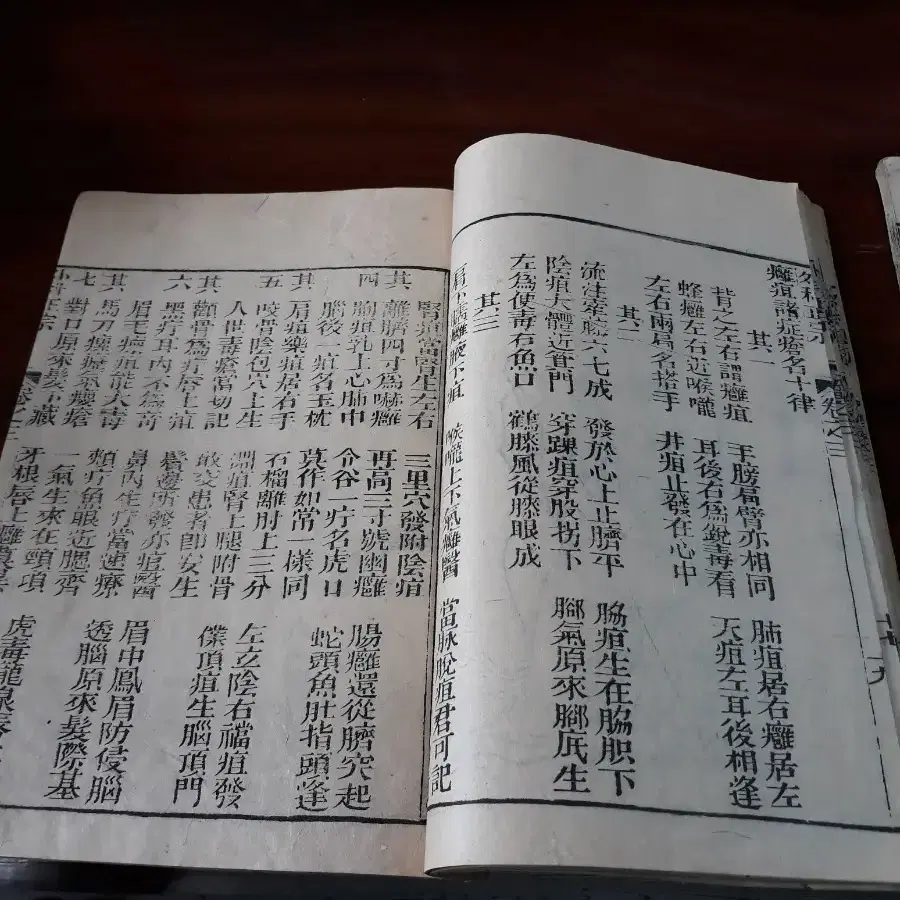 外科正宗
癰疽諸症瘡名十律
其一
背之左右謂癰疽 手膊肩臂亦相同 肺疽居右癰居左
蜂癰左右近喉嚨 耳後右為銳毒看 夭疽左耳後相逢
左右兩肩名搭手 井疽止發在心中
其二
流注牽藤六七成 發於心上止臍平 脇疽生在脇胑下
陰疽大體近衝門 穿踝疽穿股拐下 腳氣原來腳底生
左為便毒右魚口 鶴膝風從膝眼成
其三
肩下諸癰腋下疽 喉嚨上下氣癰醫 當脉脫疽君可記
腎疽當腎生左右 三里穴發附陰疽
其 離臍四寸為嚇癰 再高三寸號幽癰 腸癰還從臍突起
四 胸疽乳上心肺中 合谷一疔名虎口 蛇頭魚肚指頭逢
腦後一疽名玉枕 莫作如常一樣同
其 肩疽樂疽居右手 石榴離肘上三分 左立陰右襠疽發
五 咬骨陰包穴上生 淵疽腎上腿附骨 僕頂疽生腦頂門
人世毒瘡當切記 敢交患者即安生
其 顴骨為疔唇上疽 鬚邊所發亦疽醫 眉中鳳眉防侵腦
六 黑疔耳內不為 鼻內生疔當速療 透腦原來髮際基
眉毛瘟疽能大毒 類疔魚眼近腮齊
其 馬刀瘰癧氣癭瘡 一氣生來在頸項 虎毒龍泉
七 對口原來髮下藏 牙根唇上
外科正宗 卷之三
卷之三
十九